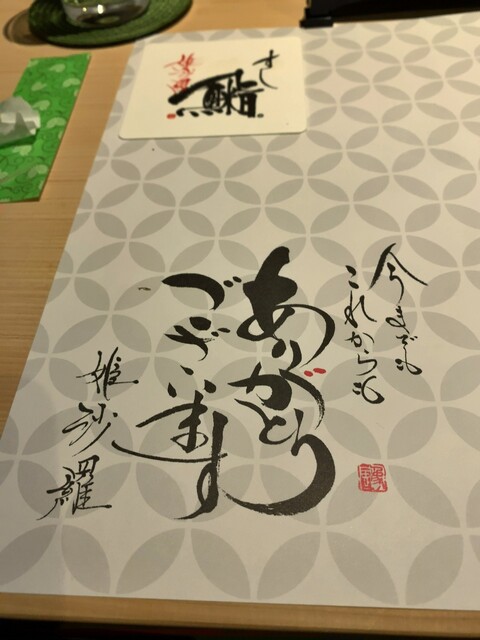 すし
鮨
姫沙羅
今までも
これからも
ありがとう
ございます
姫沙羅